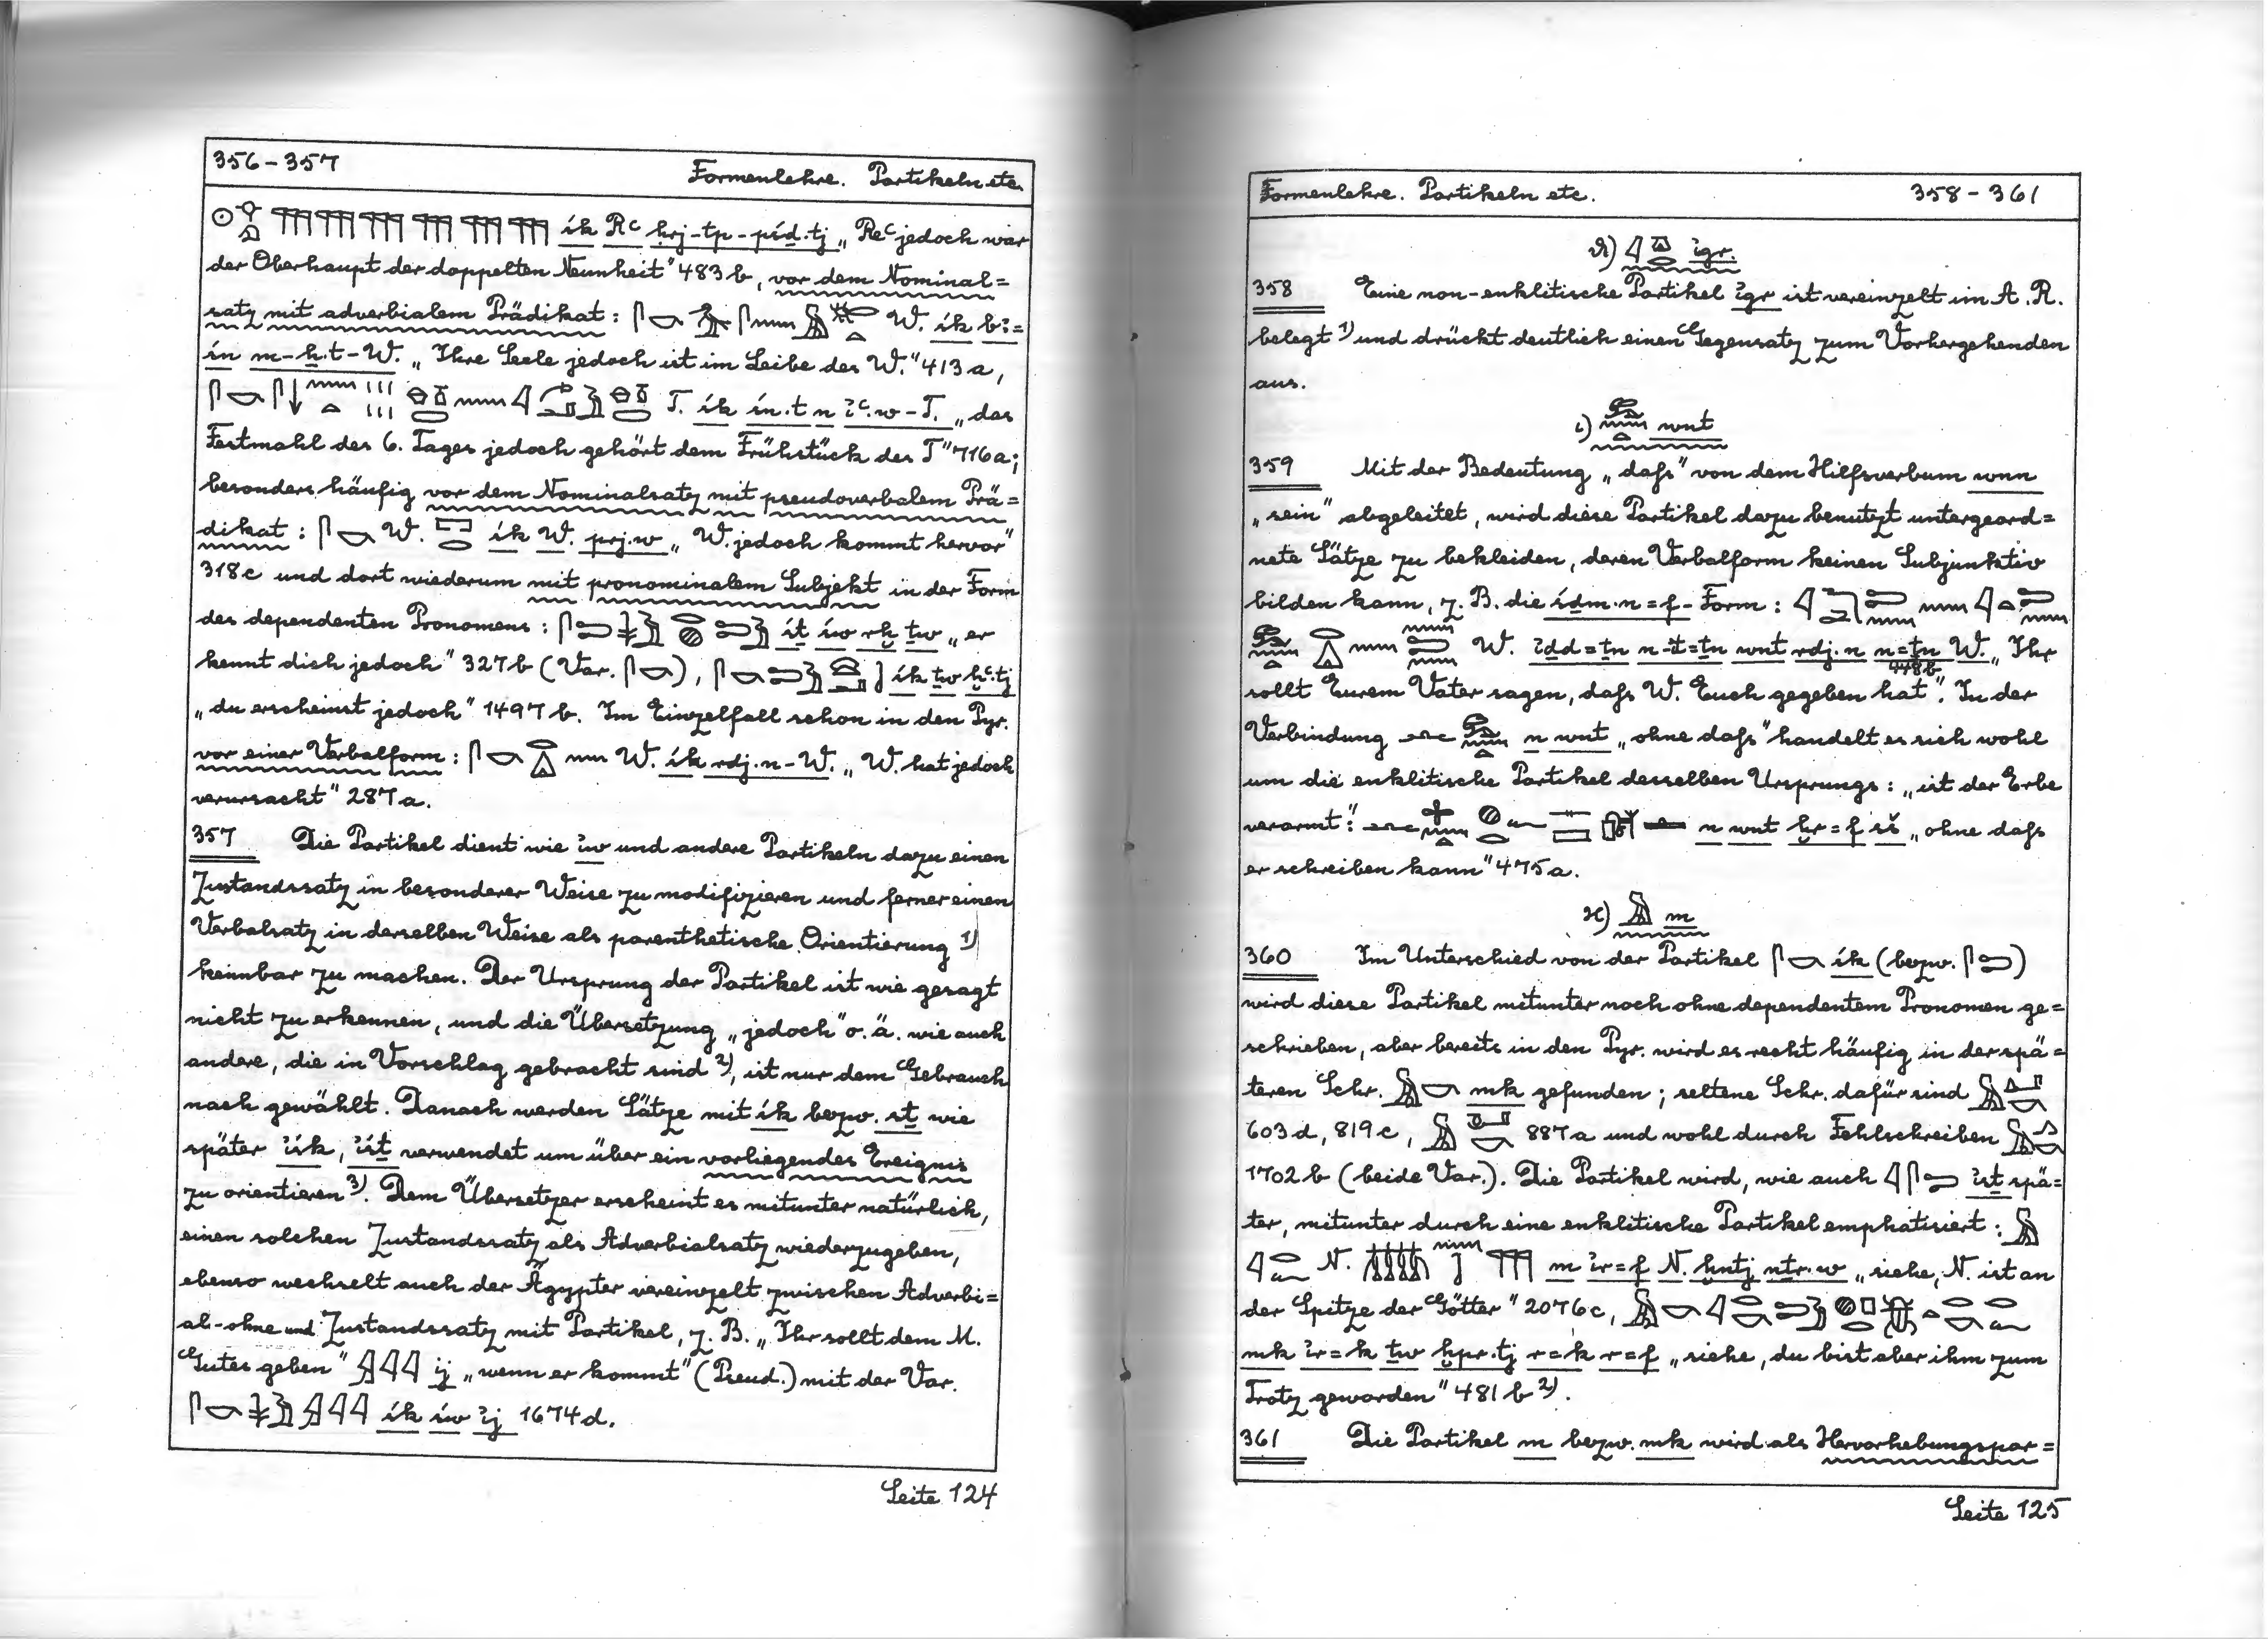 356-357 Formenlehre. Partikeln etc.
śk Rꜥ ḥrj-tp-pśḏ.tj „Reꜥ jedoch war
der Oberhaupt der doppelten Neunheit" 483b, vor dem Nominal=
satz mit adverbialem Prädikat: W. śk bꜣ=
śn m-ẖ.t-W. „Ihre Seele jedoch ist im Leibe des W." 413a,
T. śk śn.t n ꞽꜥ.w-T. „das
Festmahl des 6. Tages jedoch gehört dem Frühstück des T" 716a;
besonders häufig vor dem Nominalsatz mit pseudoverbalem Prä=
dikat: W. śk W. prj.w „W. jedoch kommt hervor"
318c und dort wiederum mit pronominalem Subjekt in der Form
des dependenten Pronomens: śṯ św rḫ ṯw „er
kennt dich jedoch" 327b (Var. ), śk ṯw ḫꜥ.tj
„du erscheinst jedoch" 1497b. Im Einzelfall schon in den Pyr.
vor einer Verbalform: W. śk rdj.n-W. „W. hat jedoch
verursacht" 287a.
357 Die Partikel dient wie ꞽw und andere Partikeln dazu einen
Zustandssatz in besonderer Weise zu modifizieren und ferner einen
Verbalsatz in derselben Weise als parenthetische Orientierung 1)
kennbar zu machen. Der Ursprung der Partikel ist wie gesagt
nicht zu erkennen, und die Übersetzung „jedoch" o. ä. wie auch
andere, die in Vorschlag gebracht sind 2), ist nur dem Gebrauch
nach gewählt. Danach werden Sätze mit śk bezw. śṯ wie
später ꞽśk, ꞽśṯ verwendet um über ein vorliegendes Ereignis
zu orientieren 3). Dem Übersetzer erscheint es mitunter natürlich,
einen solchen Zustandssatz als Adverbialsatz wiederzugeben,
ebenso wechselt auch der Ägypter vereinzelt zwischen Adverbi=
al- ohne und Zustandssatz mit Partikel, z. B. „Ihr sollt dem M.
Gutes geben" ꞽj „wenn er kommt" (Pseud.) mit der Var.
śk św ꞽj 1674d.
Seite 124
Formenlehre. Partikeln etc. 358-361
ϑ) ꞽgr.
358 Eine non-enklitische Partikel ꞽgr ist vereinzelt im A. R.
belegt 1) und drückt deutlich einen Gegensatz zum Vorhergehenden
aus.
ι) wnt
359 Mit der Bedeutung „daſs" von dem Hilfsverbum wnn
„sein" abgeleitet, wird diese Partikel dazu benutzt untergeord=
nete Sätze zu bekleiden, deren Verbalform keinen Subjunktiv
bilden kann, z. B. die śḏm.n=f-Form:
W. ꞽḏd=ṯn n-ꞽt=ṯn wnt rdj.n n=ṯn W. „Ihr
sollt Eurem Vater sagen, daſs W. Euch gegeben hat" 448b. In der
Verbindung n wnt „ohne daſs" handelt es sich wohl
um die enklitische Partikel desselben Ursprungs: „ist der Erbe
verarmt": n wnt ḫr=f sš „ohne daſs
er schreiben kann" 475a.
ϰ) m
360 Im Unterschied von der Partikel śk (bezw. )
wird diese Partikel mitunter noch ohne dependentem Pronomen ge=
schrieben, aber bereits in den Pyr. wird es recht häufig in der spä=
teren Schr. mk gefunden; seltene Schr. dafür sind
603d, 819c, 887a und wohl durch Fehlschreiben
1702b (beide Var.). Die Partikel wird, wie auch ꞽśṯ spä=
ter, mitunter durch eine enklitische Partikel emphatisiert:
N. m ꞽr=f N. ḫntj nṯr.w „siehe, N. ist an
der Spitze der Götter" 2076c,
mk ꞽr=k ṯw ḫpr.tj r=k r=f „siehe, du bist aber ihm zum
Trotz geworden" 481b 2).
361 Die Partikel m bezw. mk wird als Hervorhebungspar=
Seite 125